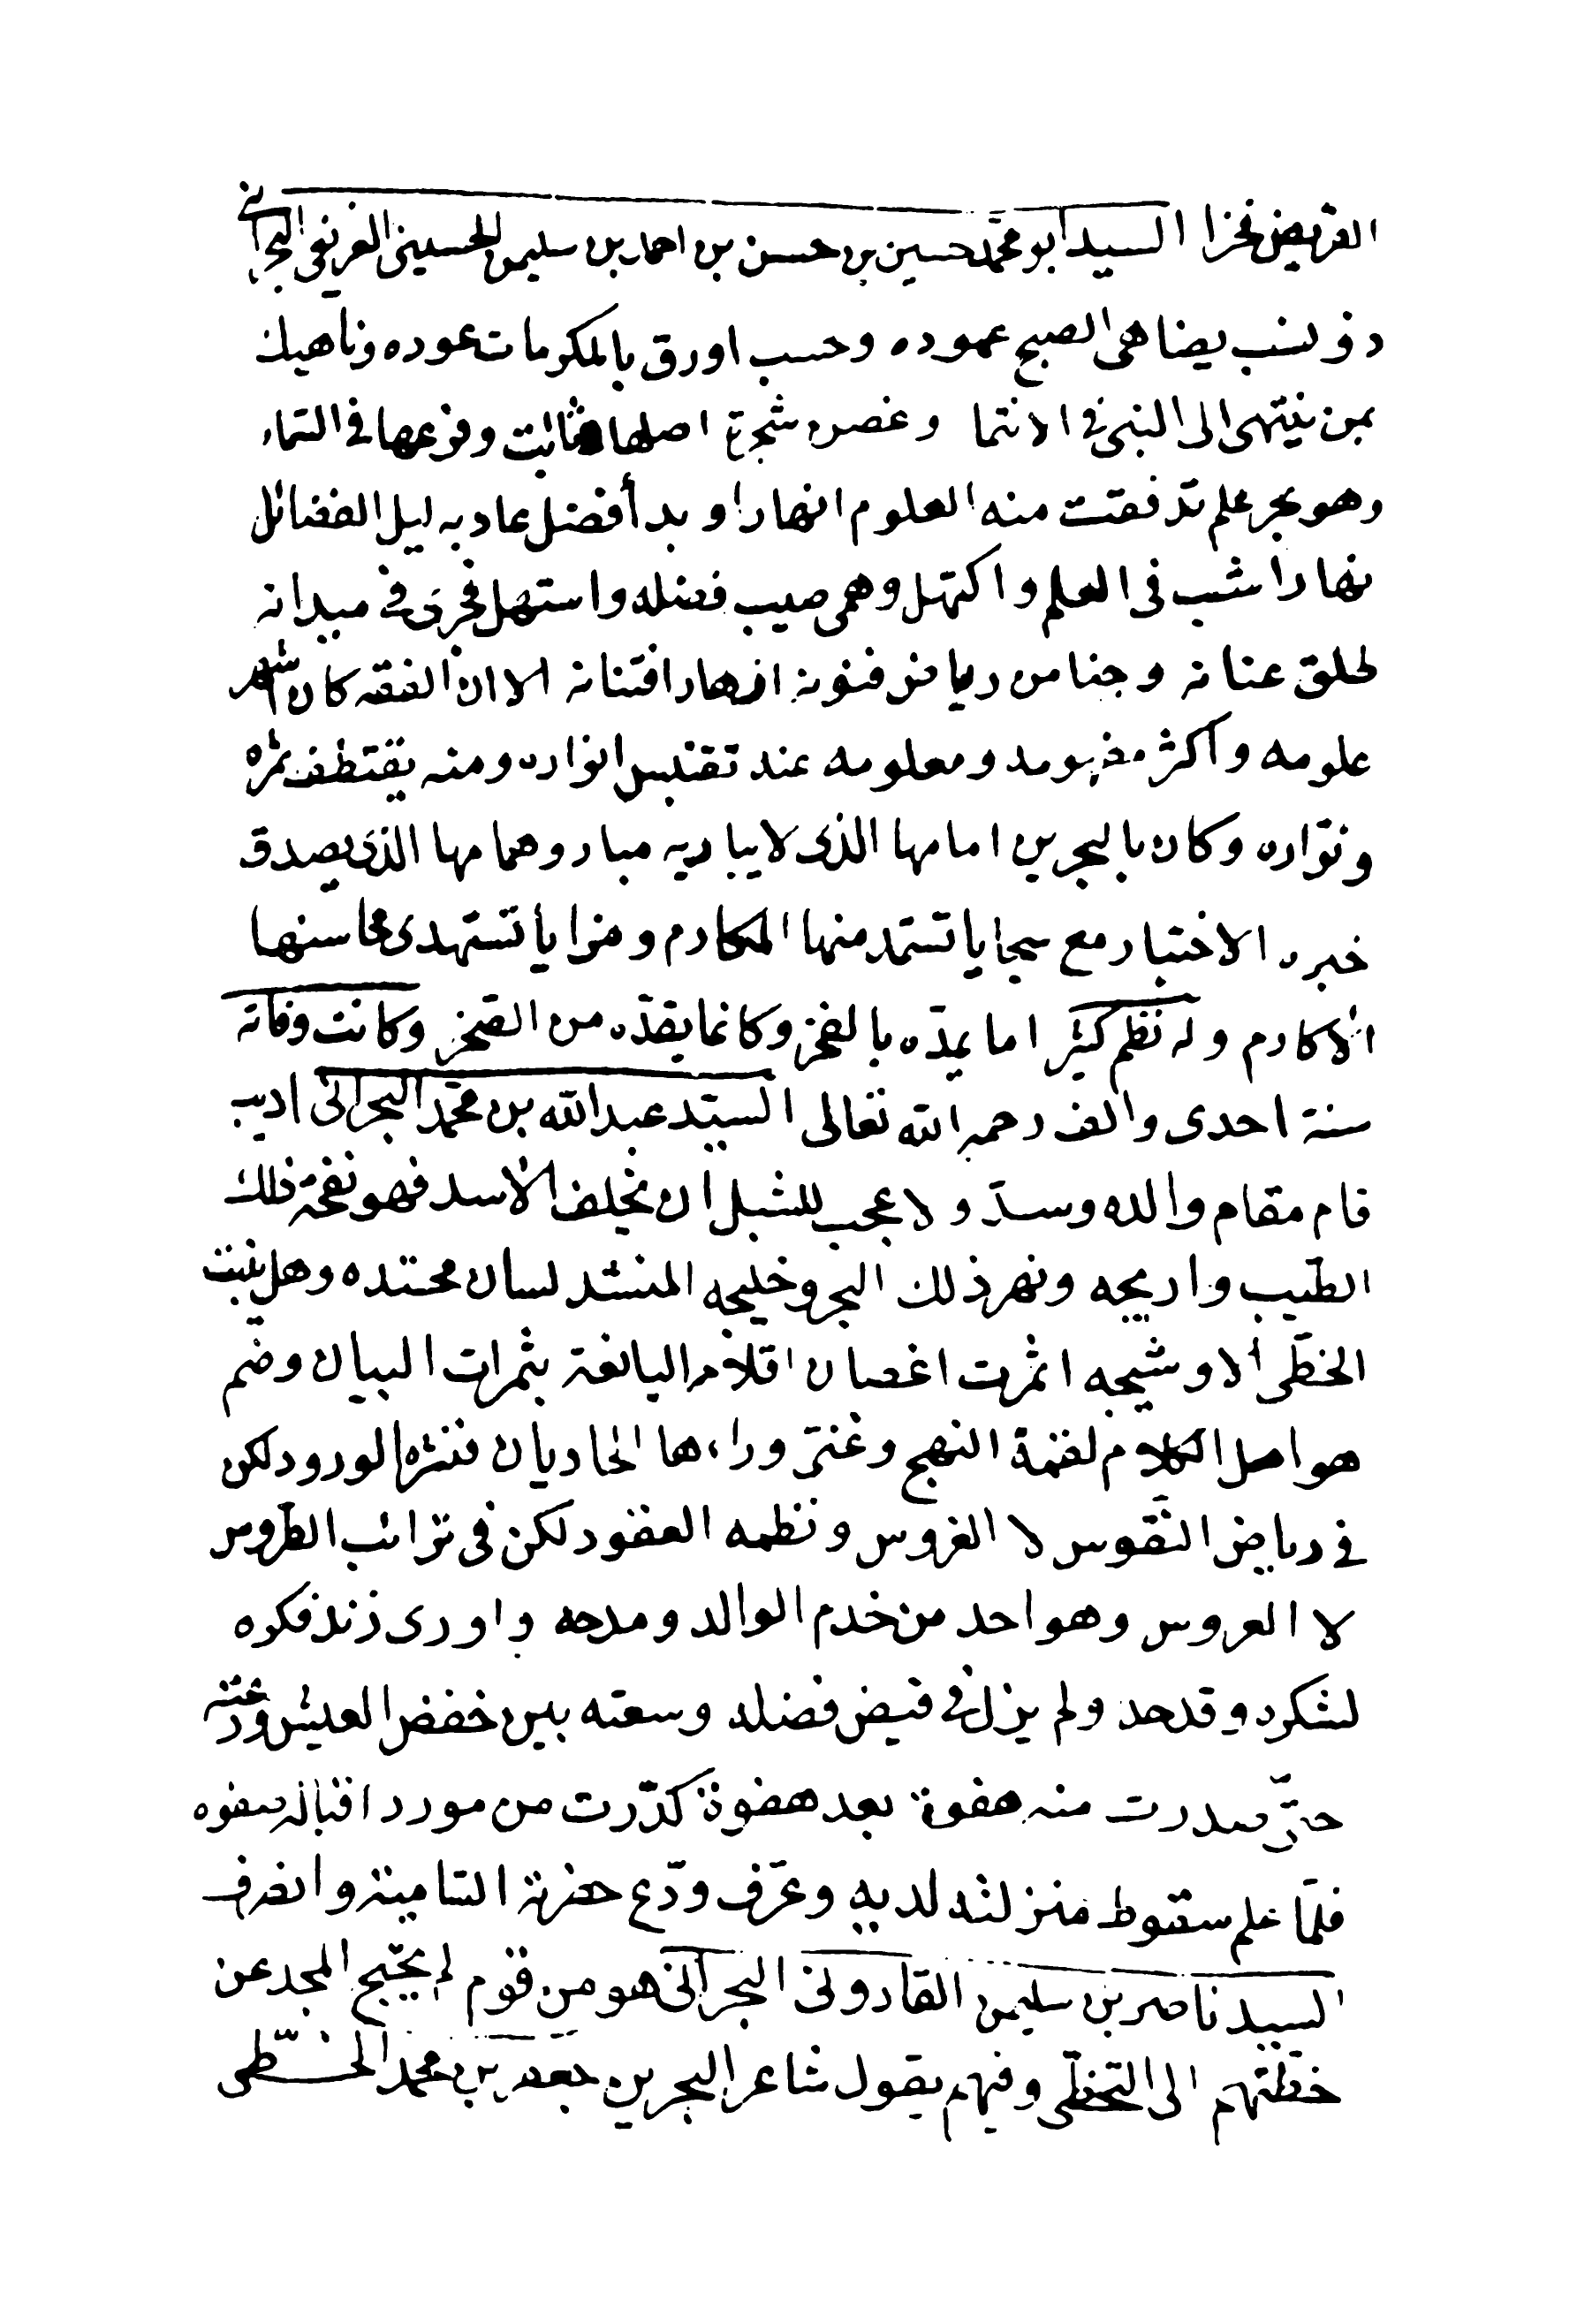 القريض فخرا السيد ابو محمد حسين بن حسن بن احمد بن سليمن الحسيني الغريفي البحراني
ذو نسب يضاهي الصبح عموده وحسب اورق بالمكرمات عوده وناهيك
بمن ينتهى الى النبى في الانتما وغصن شجرة اصلها ثابت وفرعها في السماء
وهو بحر علم تدفقت منه العلوم انهارا وبدأ فضل عاد به ليل الفضائل
نهارا شب في العلم واكتهل وهمى صيب فضله واستهل فجرى في ميدانه
طلق عنانه وجنا من رياض فنونه ازهار افتنانه الا ان الفقه كان اشهر
علومه واكثر مفهومه ومعلومه عند تقتبس انواره ومنه يقتطف ثمره
ونواره وكان بالبحرين امامها الذى لا يباريه مبار وهمامها الذى يصدق
خبره الاختبار مع سجايا تستمد منها المكارم ومزايا تستهدى محاسنها
الاكارم وله نظم كثير اما يمده بالفخر وكانما يقده من الصخر وكانت وفاته
سنة احدى والف رحمه الله تعالى السيد عبد الله بن محمد البحراني اديب
قام مقام والده وسد ولا عجب للشبل ان يخلف الاسد فهو نفحة ذلك
الطيب واريجه ونهر ذلك البحر وخليجه المنشد لسان محتده وهل ينبت
الخطى الا وشيجه اثمرت اغصان اقلامه اليانعة بثمرات البيان وضم
هو اصل الكلام لفتمة النهج وغنى وراءها الحاديان فنثره الورود لكن
في رياض النقوس لا الغروس ونظمه العقود لكن في ترائب الطروس
لا العروس وهو احد من خدم الوالد ومدحه واورى زند فكره
لشكره وقدحه ولم يزل في فيض فضله وسعته بين خفض العيش ودعته
حتى صدرت منه هفوة بعد هفوة كدرت من مورد اقباله صفوه
فلما علم سقوط منزلته لديه وعرف ودع حضرته السامية وانصرف
السيد ناصر بن سليمن القارونى البحرانى هو من قوم لم يحتج المجد عن
خطتهم الى التخطى وفيهم يقول شاعر البحرين جعفر بن محمد الخطى